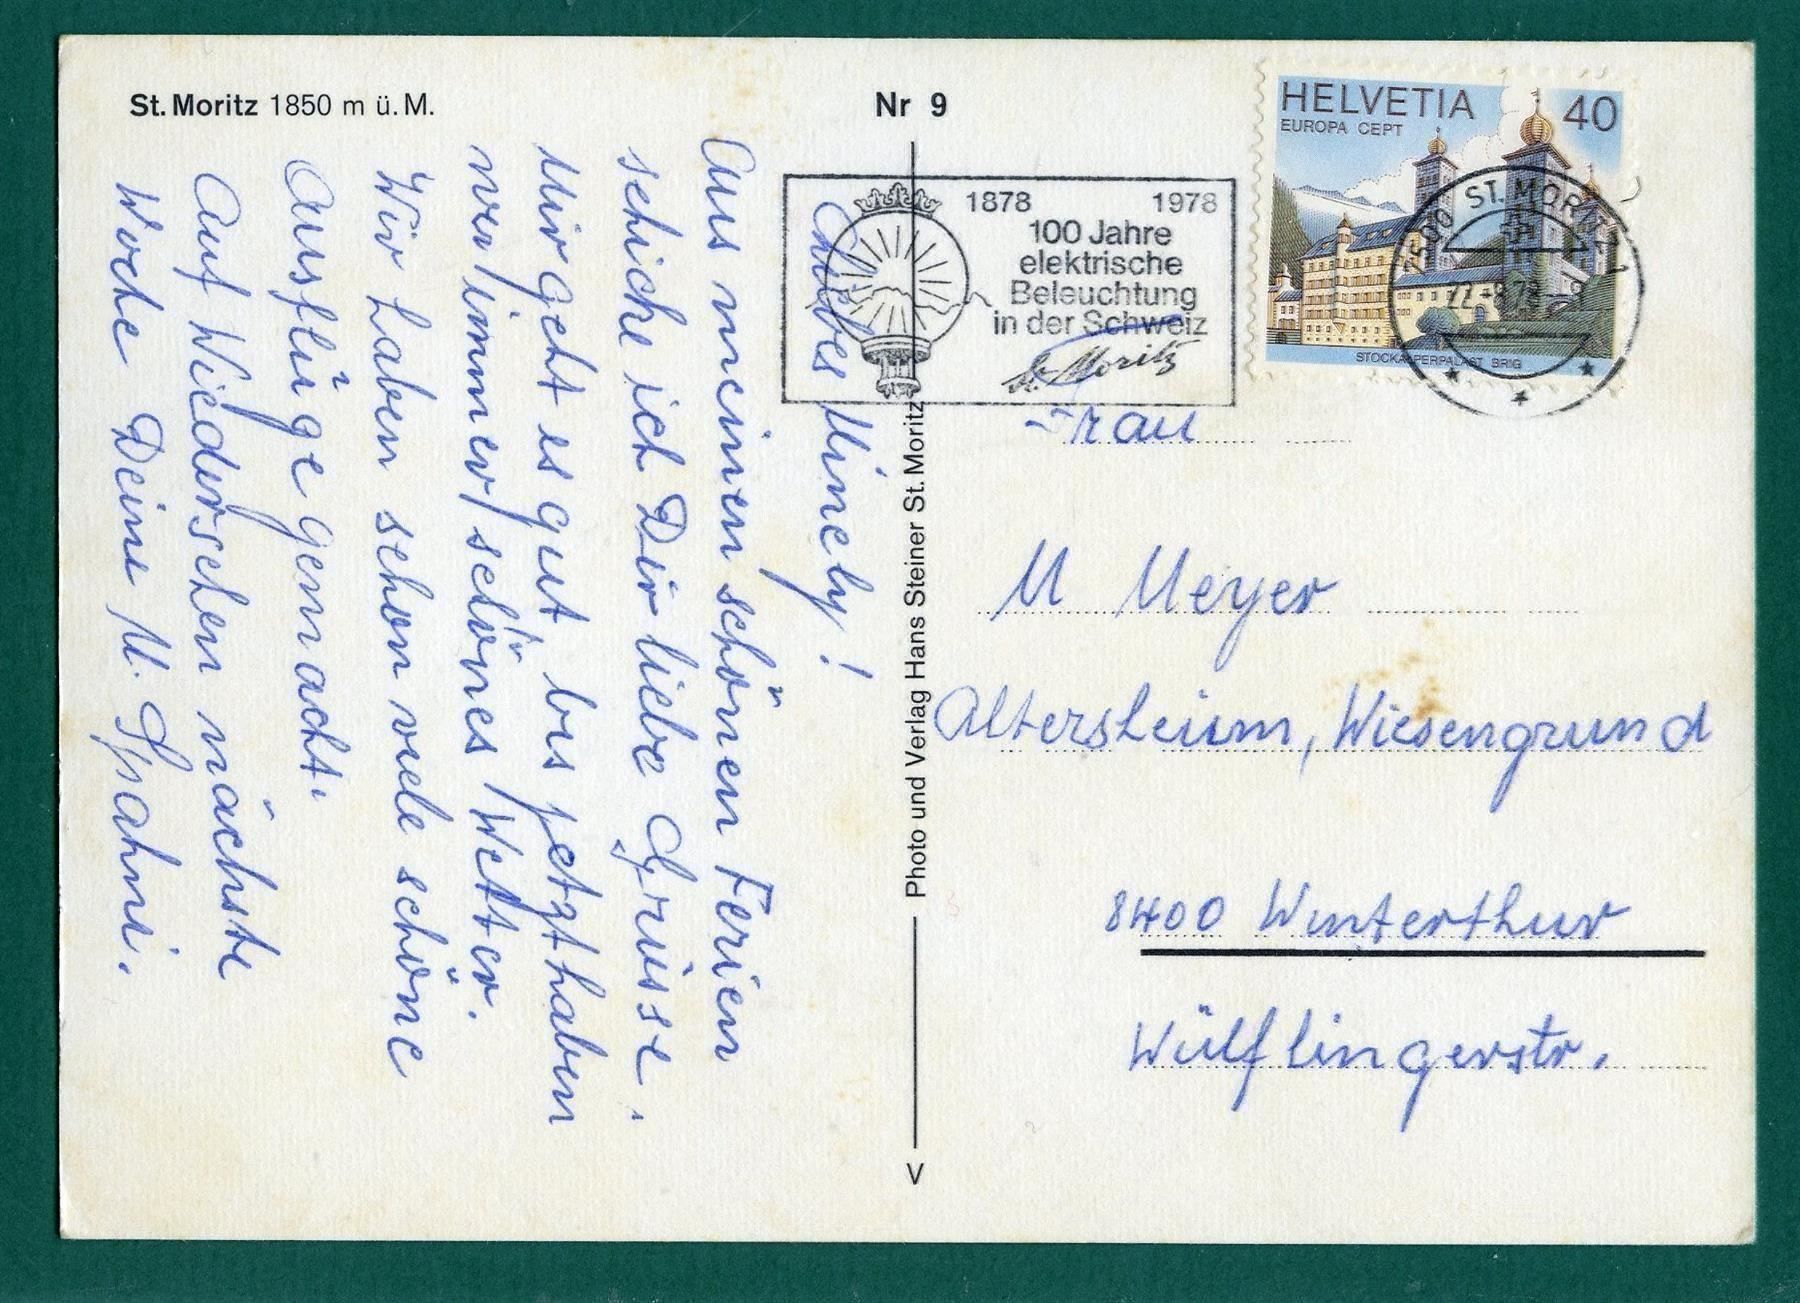 St. Moritz 1850 m ü. M.
Nr 9
HELVETIA 40
EUROPA CEPT
STOCKALPERPALAST BRIG
7500 ST. MORITZ 1
1878 1978
100 Jahre
elektrische
Beleuchtung
in der Schweiz
St. Moritz
Liebes Minely!
Aus meinen schönen Ferien
schicke ich Dir liebe Grüsse.
Mir geht es gut bis jetzt haben
wir immer schönes Wetter.
Wir haben schon viele schöne
Ausflüge gemacht.
Auf Wiedersehen nächste
Woche Deine M. Spahni.
Photo und Verlag Hans Steiner St. Moritz
V
Frau
M Meyer
Altersheim, Wiesengrund
8400 Winterthur
Wülflingerstr.